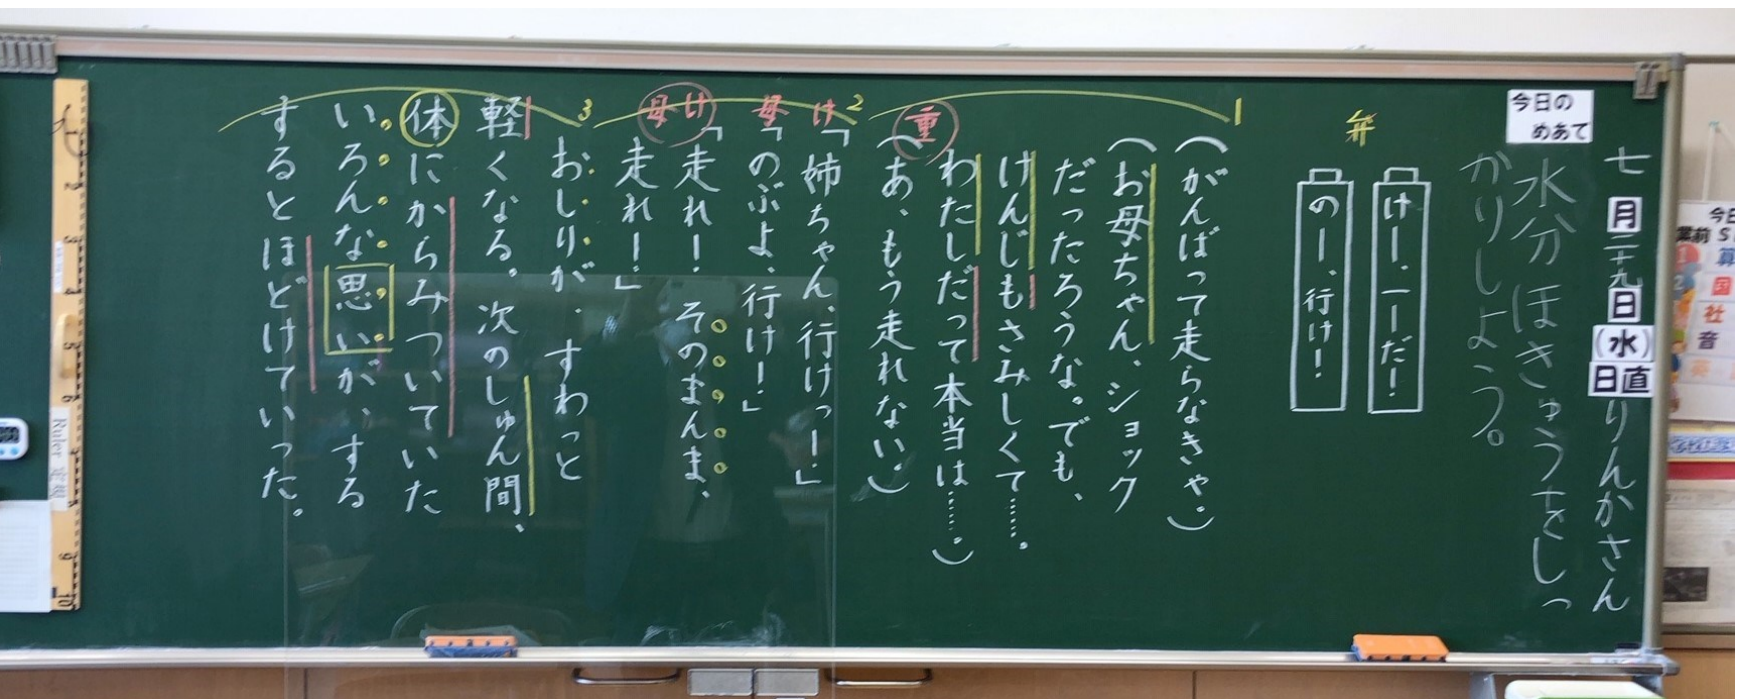 七月二十九日(水)
日直 りんかさん
今日の
めあて
水分ほきゅうをしっ
かりしよう。
弁
けー、ーだ!
のー、行け!
1
(がんばって走らなきゃ。)
(お母ちゃん、ショック
だったろうな。でも、
けんじもさみしくて……。
わたしだって本当は……。)
重
(あ、もう走れない。)
2
け
「姉ちゃん、行けっー!」
母
「のぶよ、行け!」
け
母
「走れ!そのまんま、
走れー!」
3
おしりが、すわっと
軽くなる。次のしゅん間、
体にからみついていた
いろんな思いが、する
するとほどけていった。
Ruler 定規
今日
算
国
社
音